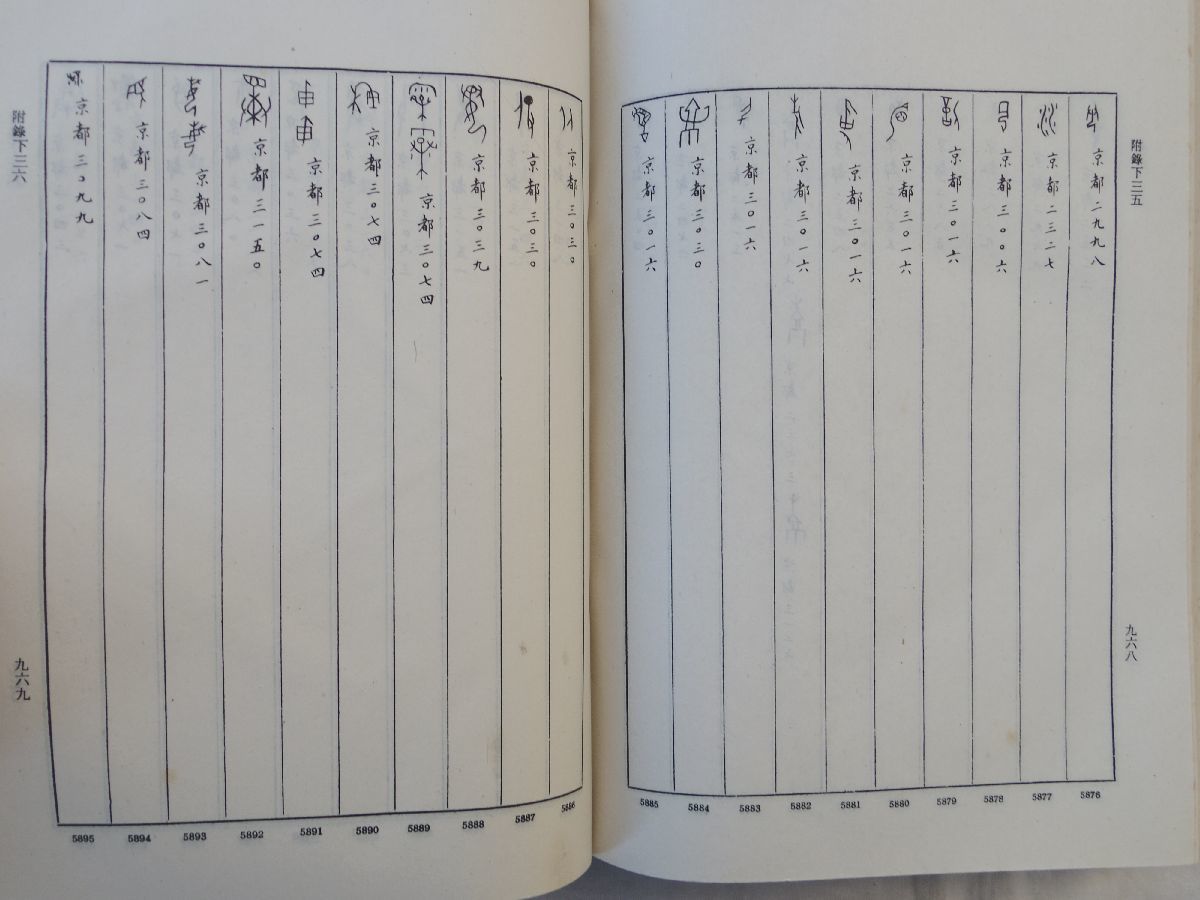 附錄下三五
京都二九九八
京都二三二七
京都三〇〇六
京都三〇一六
京都三〇一六
京都三〇一六
京都三〇一六
京都三〇一六
京都三〇三〇
京都三〇一六
九六八
5876
5877
5878
5879
5880
5881
5882
5883
5884
5885
京都三〇三〇
京都三〇三〇
京都三〇三九
京都三〇七四
京都三〇七四
京都三〇七四
京都三一五〇
京都三〇八一
京都三〇八四
京都三〇九九
附錄下三六
九六九
5886
5887
5888
5889
5890
5891
5892
5893
5894
5895